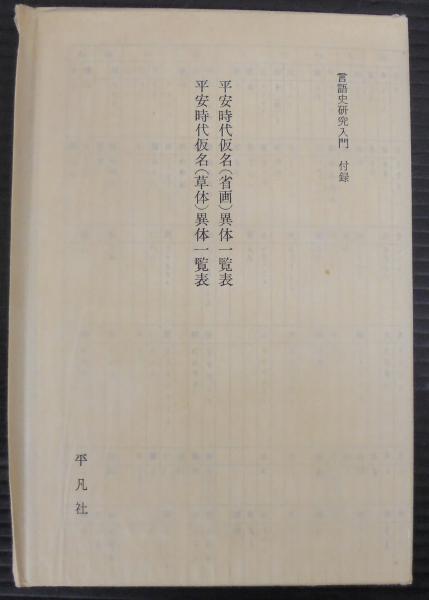 言語史研究入門　付録
平安時代仮名（省画）異体一覧表
平安時代仮名（草体）異体一覧表
平凡社